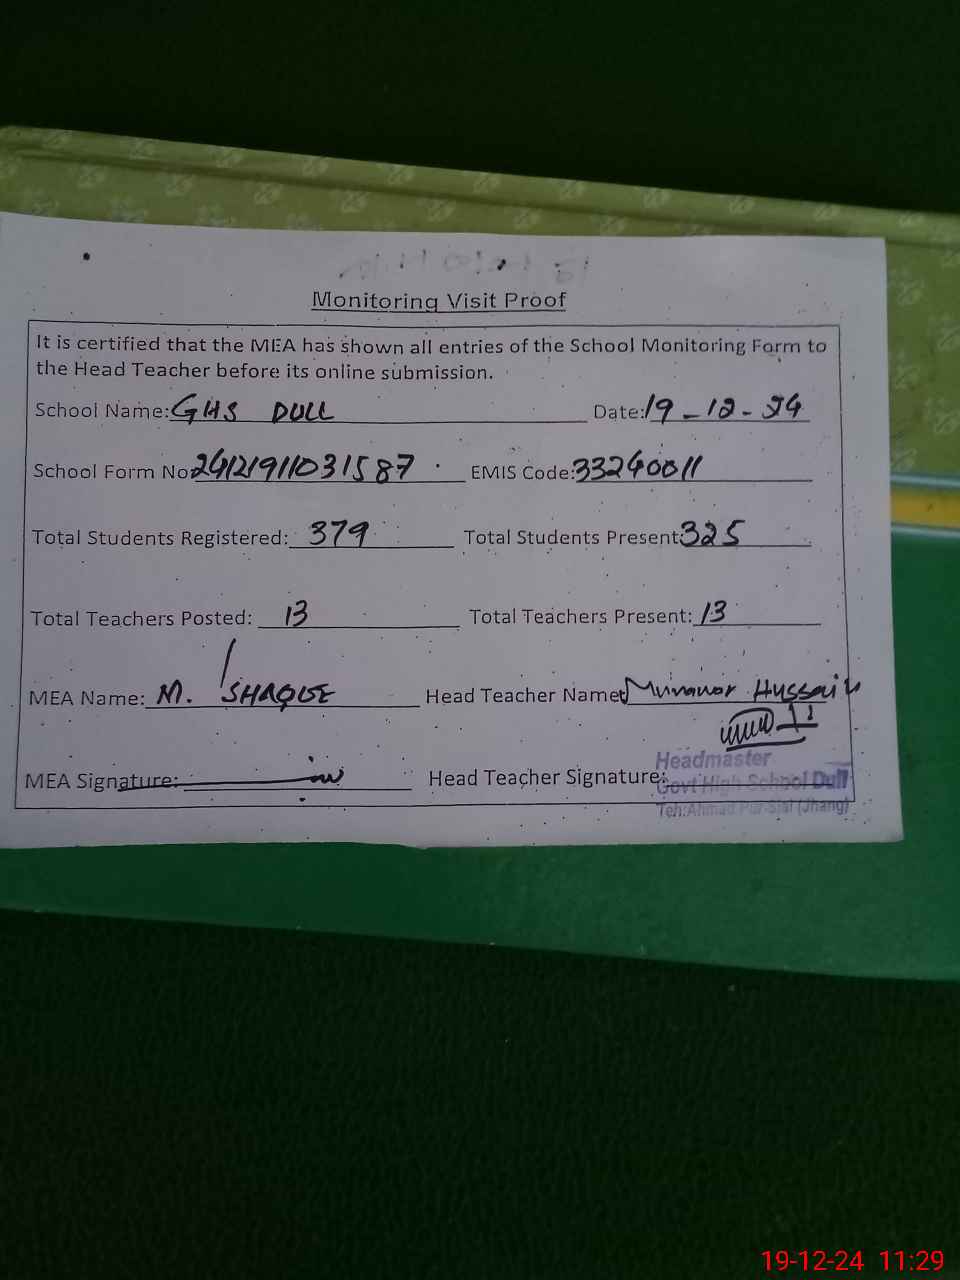 Monitoring Visit Proof
It is certified that the MEA has shown all entries of the School Monitoring Form to
the Head Teacher before its online submission.
School Name: GHS DULL Date: 19-12-24
School Form No 24121911031587 EMIS Code: 33240011
Total Students Registered: 379 Total Students Present: 325
Total Teachers Posted: 13 Total Teachers Present: 13
MEA Name: M. ISHAQUE Head Teacher Name: Munawar Hussain
MEA Signature: Head Teacher Signature:
Headmaster
Govt High School Dull
Teh:Ahmad Pur Sial (Jhang)
19-12-24 11:29